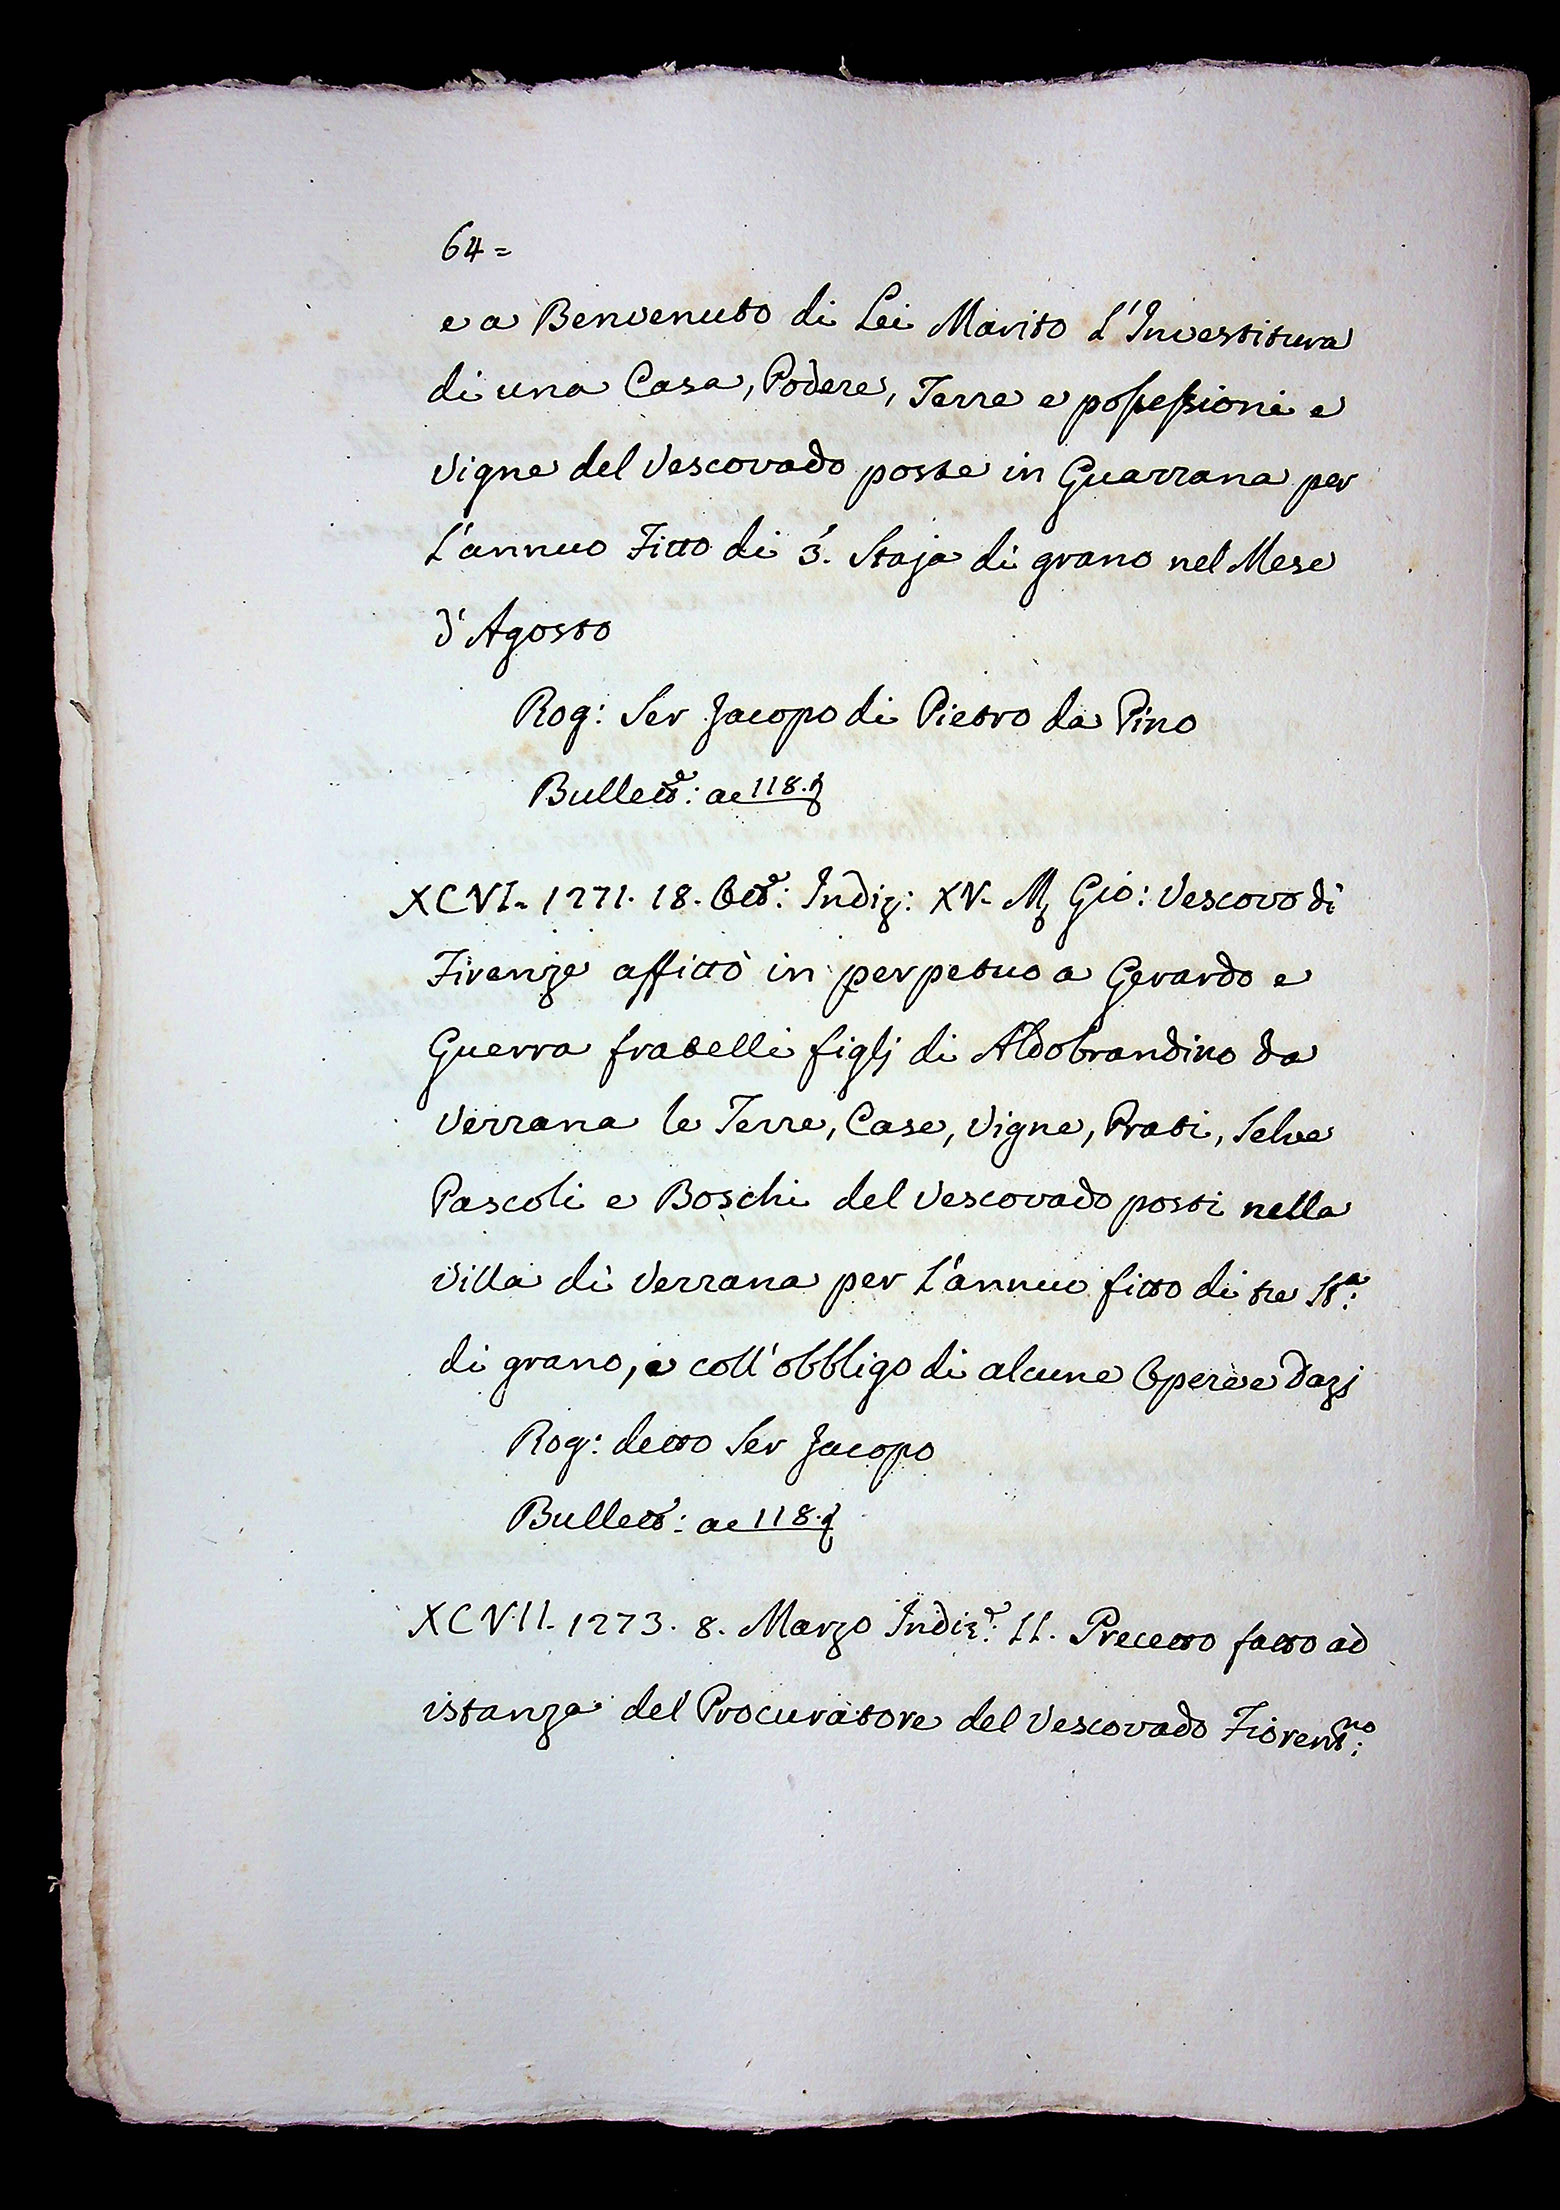 64=
e a Benvenuto di Lei Marito l'Investitura
di una Casa, Podere, Terre e possessioni e
Vigne del Vescovado poste in Guarrana per
l'annuo Fitto di 3. Staja di grano nel Mese
d'Agosto
Rog: Ser Jacopo di Pietro da Pino
Bullett: ac 118.
XCVI. 1271. 18. Ott: Indiz: XV. M Gio: Vescovo di
Firenze affittò in perpetuo a Gerardo e
Guerra fratelli figlj di Aldobrandino da
Verrana le Terre, Case, Vigne, Prati, Selve
Pascoli e Boschi del Vescovado posti nella
Villa di Verrana per l'annuo fitto di tre Sta:
di grano, e coll'obbligo di alcune Opere e Dazj
Rog: detto Ser Jacopo
Bullett: ac 118.
XCVII. 1273. 8. Marzo Indiz: II. Precetto fatto ad
istanza del Procuratore del Vescovado Fiorentno: